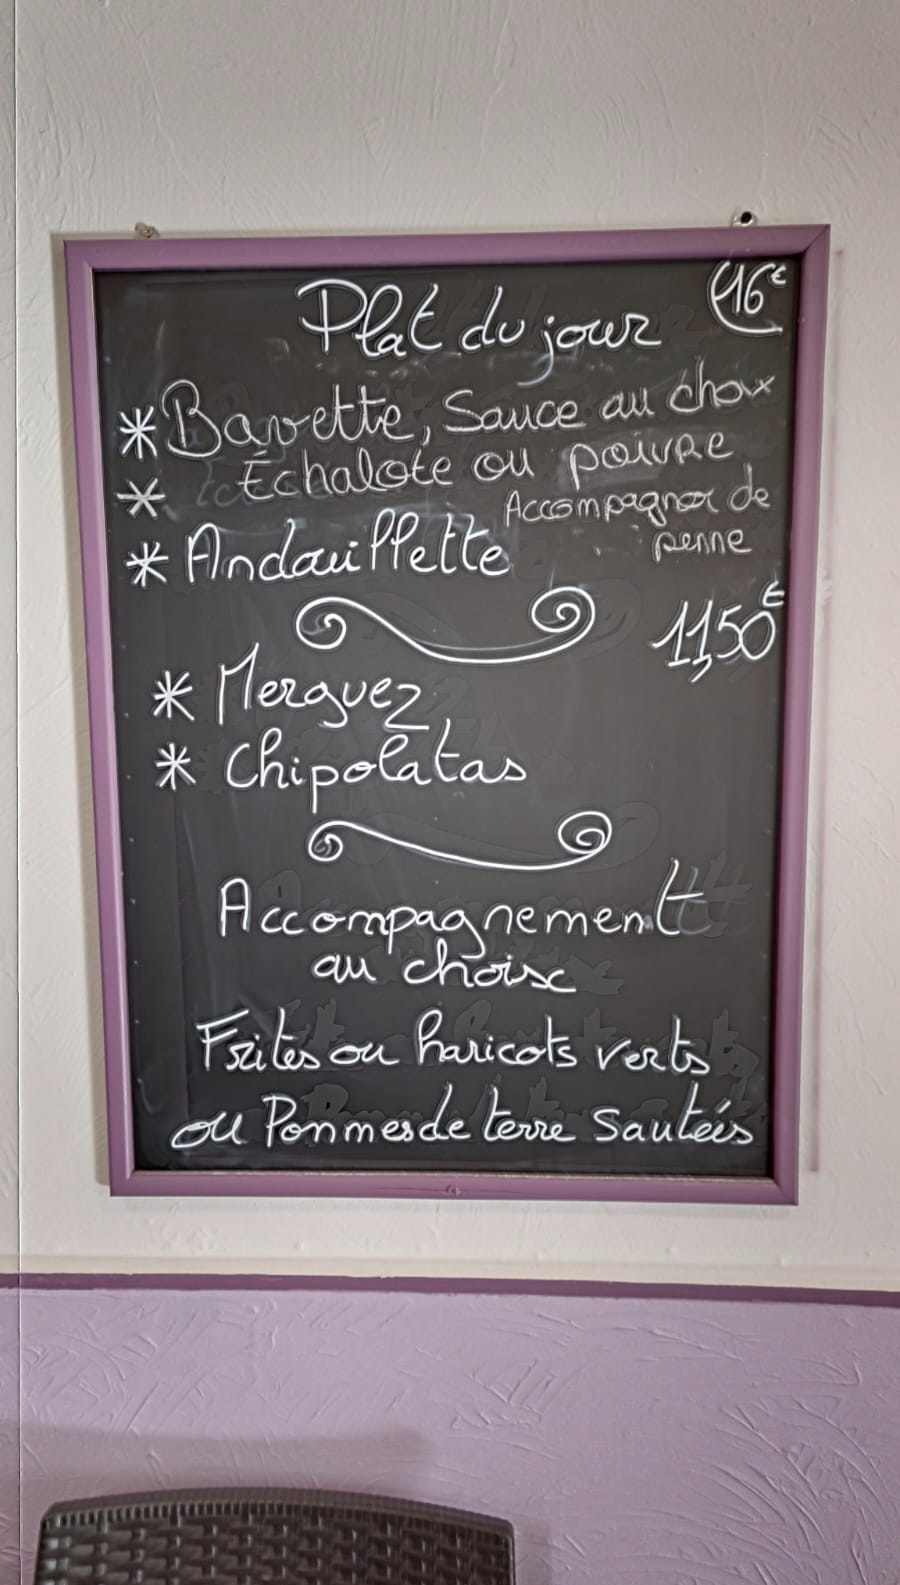 Plat du jour 16€
* Bavette, Sauce au choix
* Échalote ou poivre
Accompagner de
penne
* Andouillette
11,50€
* Merguez
* Chipolatas
Accompagnement
au choix
Frites ou haricots verts
ou Pommes de terre sautées